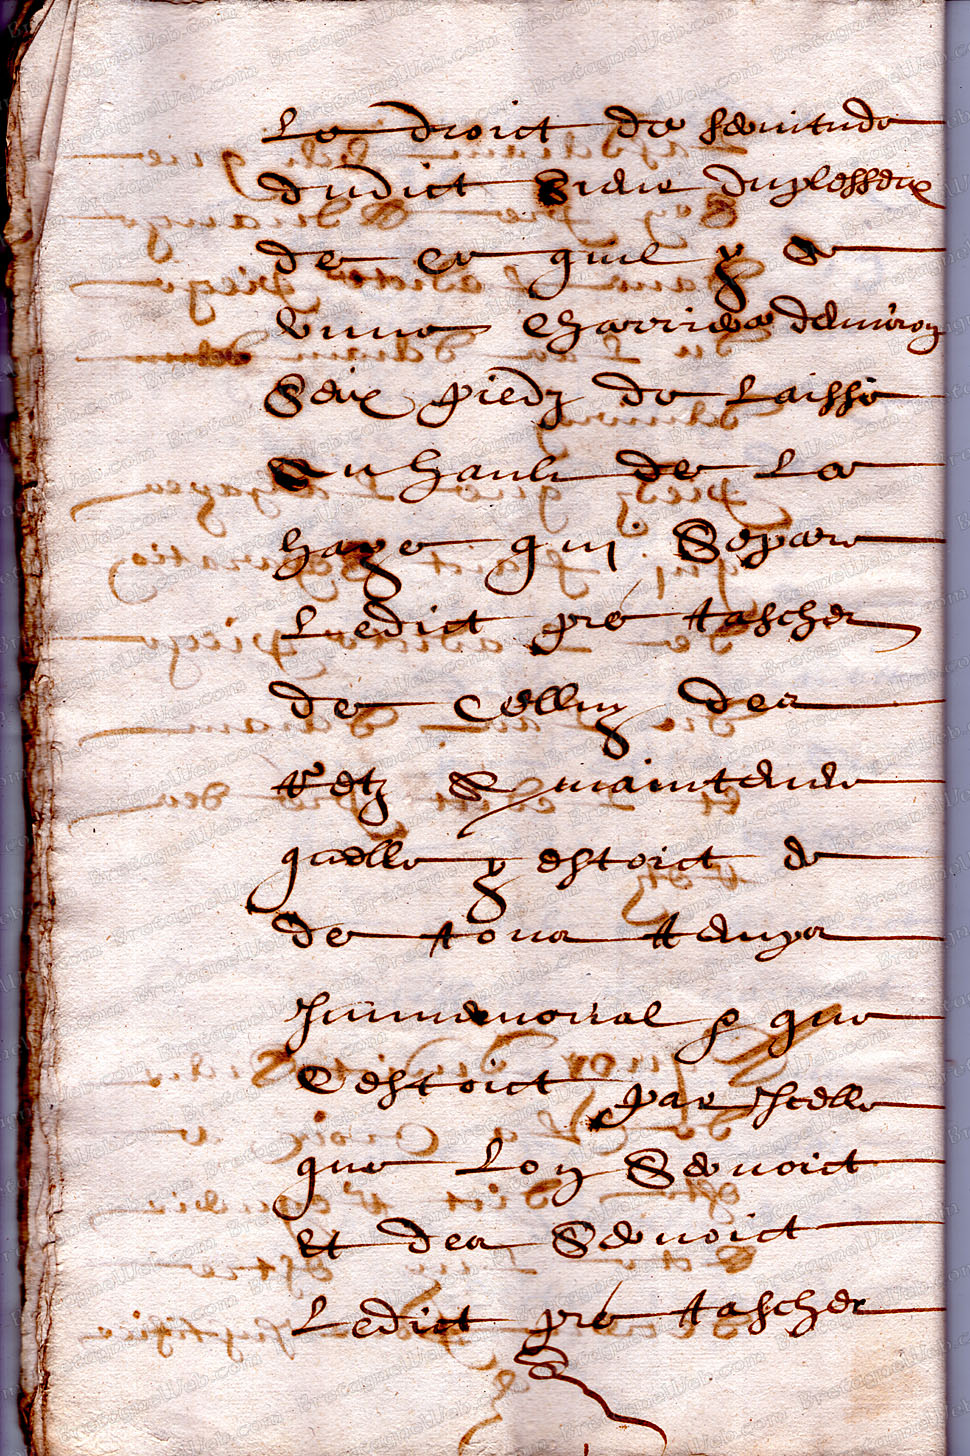 Le droict de servitude
dudict Sieur duplesseix
de ce quil y a
vune charriere denviron
Seix piedz de Laisse
Au hault de La
haye qui Separe
Ledict pré tascher
de Celluy des
retz & maintenir
quelle y estoict de
de tous temps
Immemorial & que
Cestoict par Icelle
que Lon Servoict
Et des Servoict
Ledict pré tascher